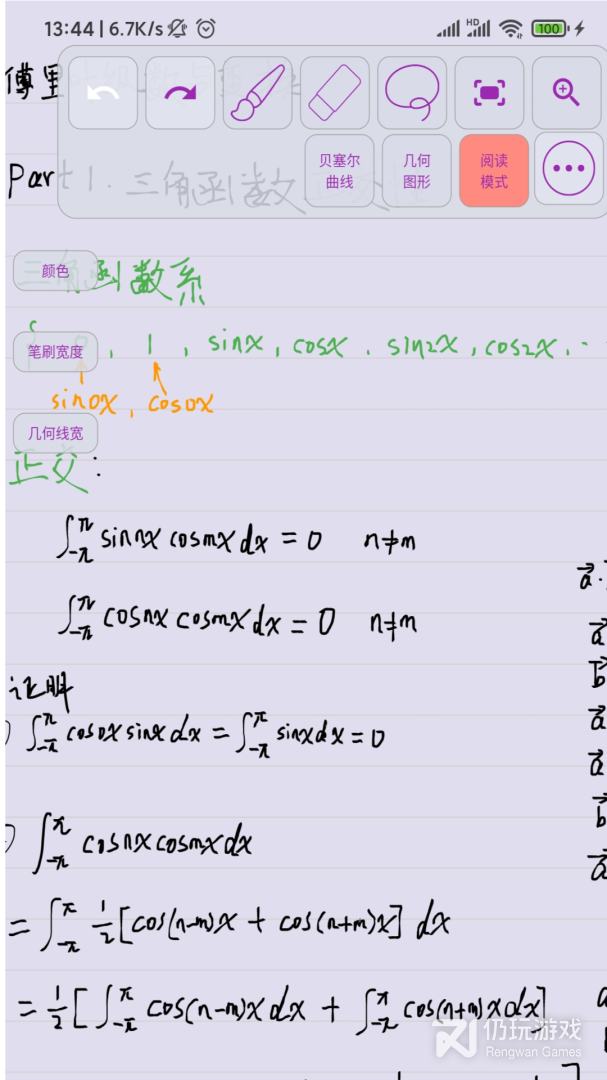 13:44 | 6.7K/s HD 100
傅里
贝塞尔曲线
几何图形
阅读模式
Part 1. 三角函数
颜色
三角函数系
笔刷宽度
{ 0, 1, sinx, cosx, sin2x, cos2x, ..
sin0x, cos0x
几何线宽
正交:
∫_{-π}^{π} sinnx cosmx dx = 0 n≠m
∫_{-π}^{π} cosnx cosmx dx = 0 n≠m
证明
) ∫_{-π}^{π} cos0x sinx dx = ∫_{-π}^{π} sinx dx = 0
) ∫_{-π}^{π} cosnx cosmx dx
= ∫_{-π}^{π} 1/2 [cos(n-m)x + cos(n+m)x] dx
= 1/2 [∫_{-π}^{π} cos(n-m)x dx + ∫_{-π}^{π} cos(n+m)x dx]
a⃗ ·
a⃗
b⃗
a⃗
a⃗
b⃗
a⃗
a
仍玩游戏
Rengwan Games